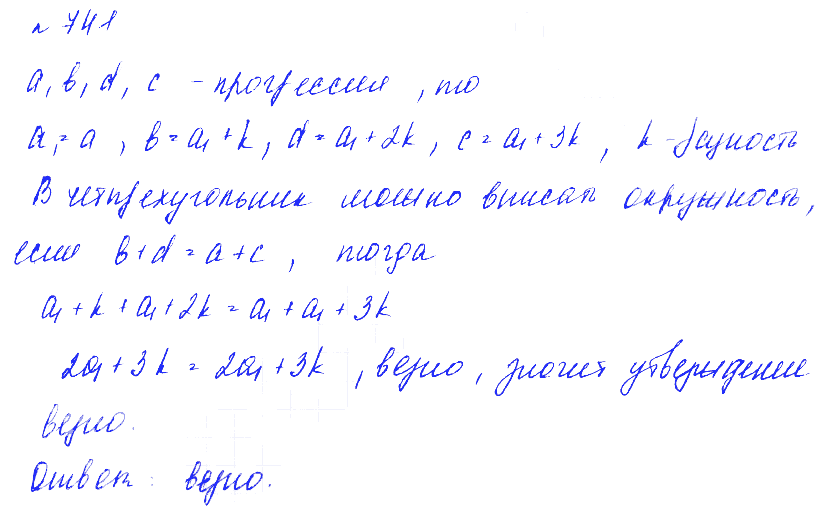 № 741
a, b, d, c - прогрессия, то
a₁ = a, b = a₁ + k, d = a₁ + 2k, c = a₁ + 3k, k - разность
В четырехугольник можно вписать окружность,
если b + d = a + c, тогда
a₁ + k + a₁ + 2k = a₁ + a₁ + 3k
2a₁ + 3k = 2a₁ + 3k, верно, значит утверждение
верно.
Ответ: верно.